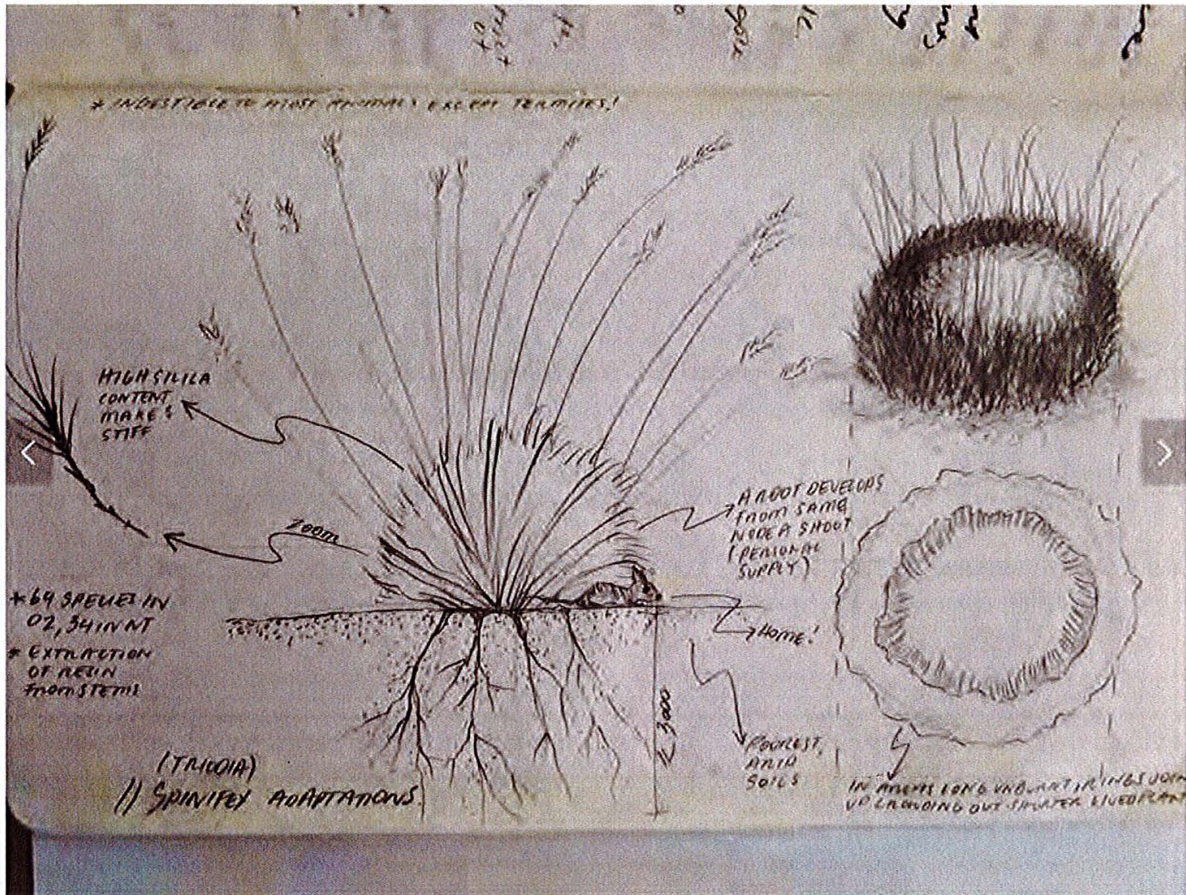 * INDESTIBLE TO MOST ANIMALS EXCEPT TERMITES!
HIGH SILICA
CONTENT
MAKES
STIFF
ZOOM
A ROOT DEVELOPS
FROM SAME
NODE A SHOOT
(PERSONAL
SUPPLY)
HOME!
* 64 SPECIES IN
OZ, 34 IN NT
* EXTRACTION
OF RESIN
FROM STEMS
3000
POOREST,
ARID
SOILS
(TRIODIA)
// SPINIFEX ADAPTATIONS
IN AREAS LONG UNBURNT, RINGS JOIN
UP CROWDING OUT SHORTER LIVED PLANT